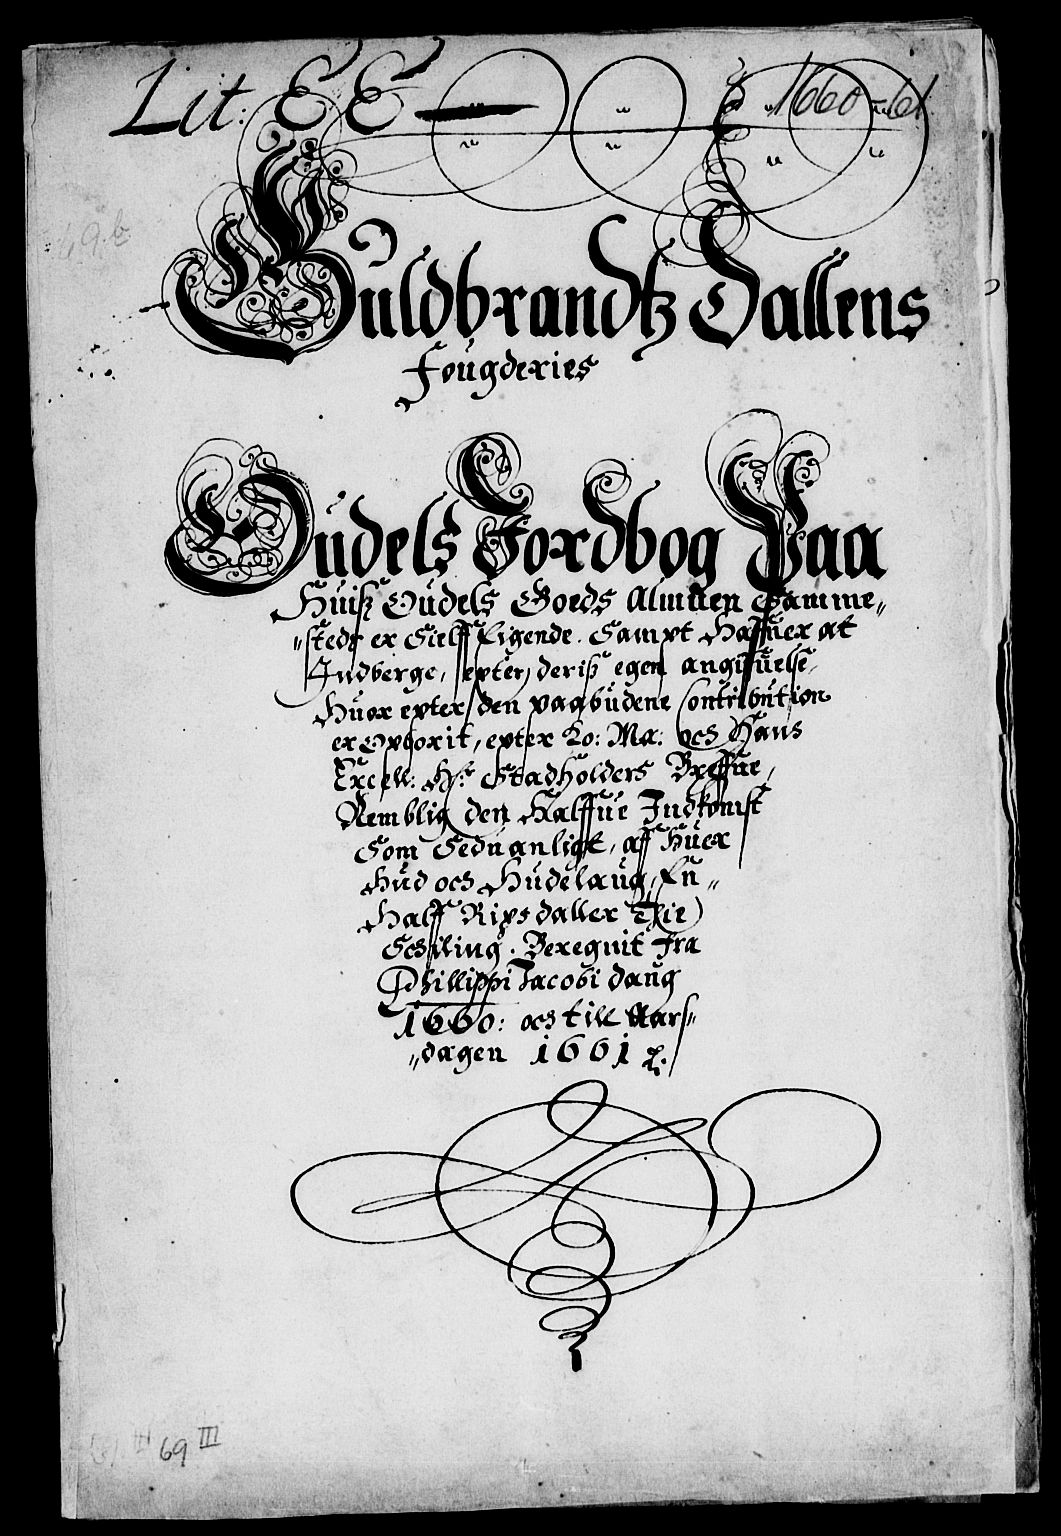 Lit: EE — 1660-61.
69.b
Guldbrandtz Dallens
Fougderies
Oudels Jordbog Paa
Huisz Oudels Goeds Almuen Samme„
„steds er Sielff Eigende. Sampt Haffuer at
Indberge, epter deris egen angifuelse,
Huor epter den paabudene Contribution
er Opborit, epter Ko: Ma: och Hans
Excell: Hr: Stadholders Breffue,
Nemblig den Halffue Indkomst
Som Seduanligt, aff Huer
Hud och Hudelaug, En„
Half Rixsdaller Thie
Schiling. Beregnit fra
Phillippi Jacobi daug
1660: och till Aars„
„dagen 1661
69 III